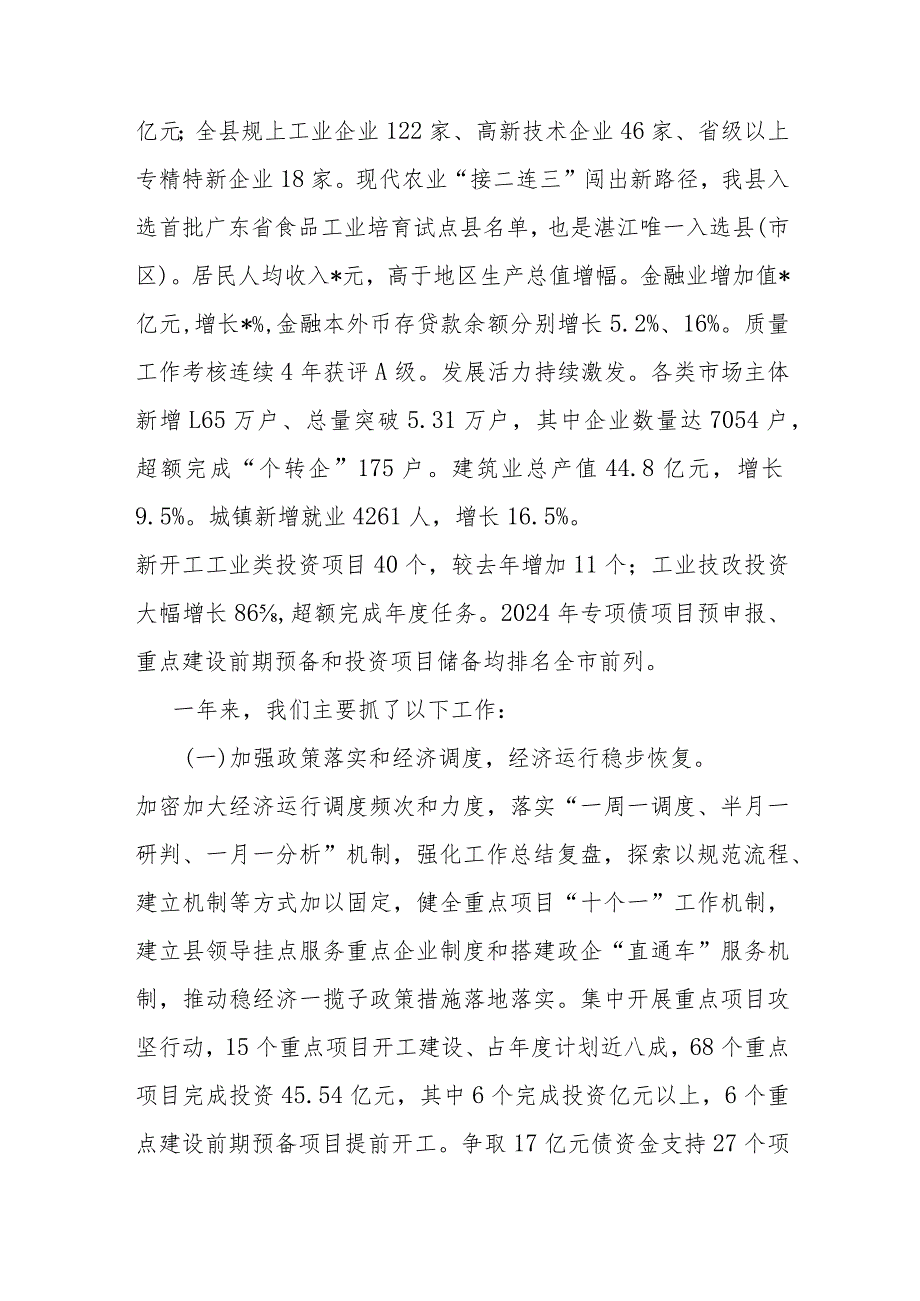 亿元；全县规上工业企业 122 家、高新技术企业 46 家、省级以上
专精特新企业 18 家。现代农业“接二连三”闯出新路径，我县入
选首批广东省食品工业培育试点县名单，也是湛江唯一入选县(市
区)。居民人均收入*元，高于地区生产总值增幅。金融业增加值*
亿元,增长*%,金融本外币存贷款余额分别增长 5.2%、16%。质量
工作考核连续 4 年获评 A 级。发展活力持续激发。各类市场主体
新增 L65 万户、总量突破 5.31 万户，其中企业数量达 7054 户，
超额完成“个转企”175 户。建筑业总产值 44.8 亿元，增长
9.5%。城镇新增就业 4261 人，增长 16.5%。
新开工工业类投资项目 40 个，较去年增加 11 个；工业技改投资
大幅增长 86%,超额完成年度任务。2024 年专项债项目预申报、
重点建设前期预备和投资项目储备均排名全市前列。
一年来，我们主要抓了以下工作：
(一)加强政策落实和经济调度，经济运行稳步恢复。
加密加大经济运行调度频次和力度，落实“一周一调度、半月一
研判、一月一分析”机制，强化工作总结复盘，探索以规范流程、
建立机制等方式加以固定，健全重点项目“十个一”工作机制，
建立县领导挂点服务重点企业制度和搭建政企“直通车”服务机
制，推动稳经济一揽子政策措施落地落实。集中开展重点项目攻
坚行动，15 个重点项目开工建设、占年度计划近八成，68 个重点
项目完成投资 45.54 亿元，其中 6 个完成投资亿元以上，6 个重
点建设前期预备项目提前开工。争取 17 亿元债资金支持 27 个项